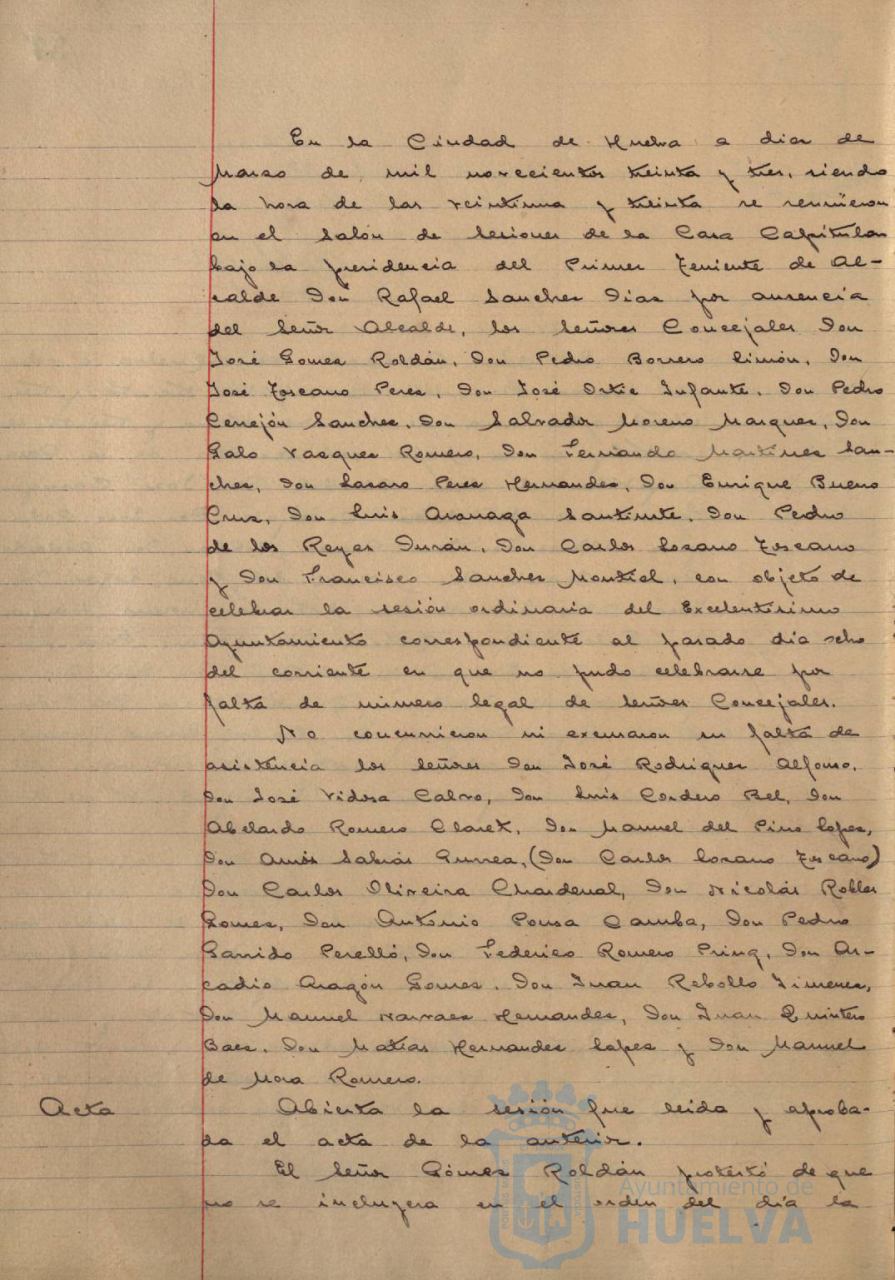 En la Ciudad de Huelva a diez de
Marzo de mil novecientos treinta y tres, siendo
la hora de las veintiuna y treinta se reunieron
en el Salón de Sesiones de la Casa Capitular
bajo la presidencia del Primer Teniente de Al-
calde Don Rafael Sanchez Diaz por ausencia
del Señor Alcalde, los Señores Concejales Don
José Gomez Roldán, Don Pedro Borrero Limón, Don
José Toscano Perez, Don José Ortiz Infante, Don Pedro
Cerrejón Sanchez, Don Salvador Moreno Marquez, Don
Galo Vazquez Romero, Don Fernando Martinez San-
chez, Don Lazaro Perez Hernandez, Don Enrique Bueno
Cruz, Don Luis Aranaga Santirute, Don Pedro
de los Reyes Durán, Don Carlos Lozano Toscano
y Don Francisco Sanchez Montiel, con objeto de
celebrar la sesión ordinaria del Excelentísimo
Ayuntamiento correspondiente al pasado dia ocho
del corriente en que no pudo celebrarse por
falta de número legal de Señores Concejales.
No concurrieron ni excusaron su falta de
asistencia los Señores Don José Rodriguez Alfonso,
Don José Vidosa Calvo, Don Luis Cordero Bel, Don
Abelardo Romero Claret, Don Manuel del Pino Lopez,
Don Amós Sabrás Gurrea, (Don Carlos Lozano Toscano)
Don Carlos Oliveira Chardenal, Don Nicolás Robles
Gomez, Don António Pousa Camba, Don Pedro
Garrido Perelló, Don Federico Romero Prinz, Don Ar-
cadio Aragón Gomez, Don Juan Rebollo Jimenez,
Don Manuel Narvaez Hernandez, Don Juan Quintero
Baez, Don Matias Hernandez Lopez y Don Manuel
de Mora Romero.
Acta Abierta la sesión fue leida y aproba-
da el acta de la anterior.
El Señor Gómez Roldán protestó de que
no se incluyera en el orden del día la
Ayuntamiento de
HUELVA